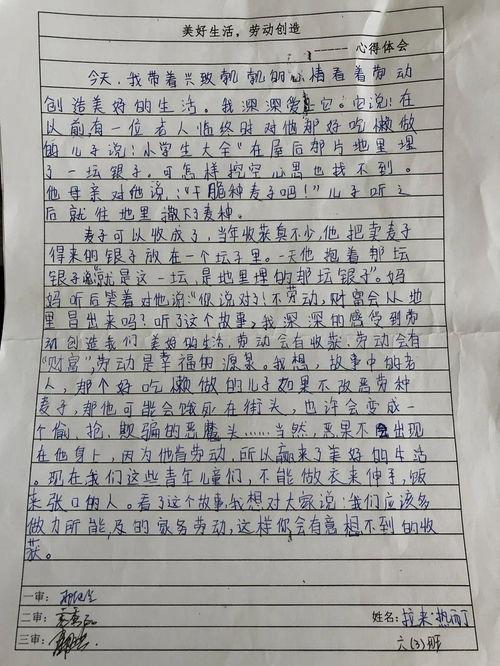 美好生活，劳动创造
------ 心得体会
今天，我带着兴致勃勃的心情看着劳动
创造美好的生活。我深深爱上它。它说：在
以前有一位老人临终时对他那好吃懒做
的儿子说：小学生大全"在屋后那片地里埋
了一坛银子。可怎样挖空心思也找不到。
他母亲对他说："干脆种麦子吧！"儿子听之
后就往地里撒下了麦种。
麦子可以收成了，当年收获真不少，他把卖麦子
得来的银子放在一个坛子里。一天他抱着那坛
银子就是这一坛，是地里埋的那坛银子"。妈
妈听后笑着对他说："你说对了！不劳动，财富会从地
里冒出来吗？听了这个故事，我深深的感受到劳
动创造我们美好的生活，劳动会有收获，劳动会有
"财富"，劳动是幸福的源泉。我想，故事中的老
人，那个好吃懒做的儿子如果不改恶劳种
麦子，那他可能会饿死在街头，也许会变成一
个偷、抢、欺骗的恶魔头……当然，恶果不会出现
在他身上，因为他肯劳动，所以赢来了美好的生活
。现在我们这些青年儿童们，不能做衣来伸手，饭
来张口的人。看了这个故事，我想对大家说：我们应该多
做力所能及的家务劳动，这样你会有意想不到的收
获。
一审：
二审：
姓名：拉来·热而丁
三审：
六（3）班